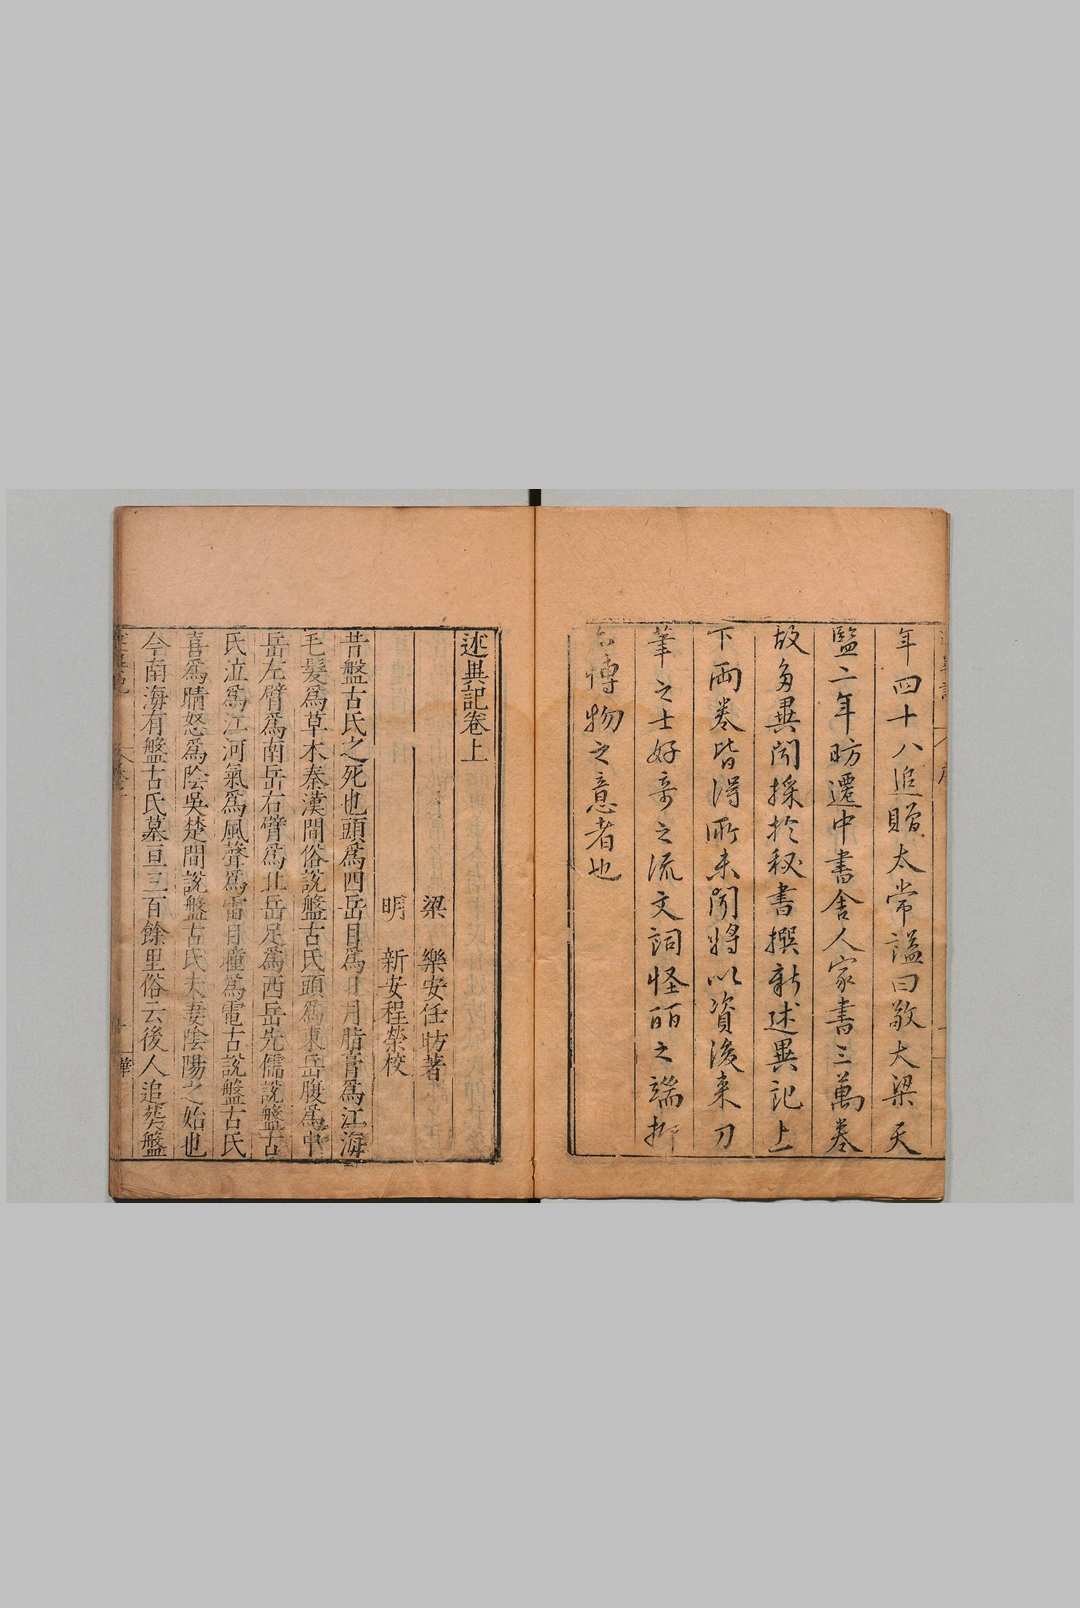 年四十八追贈太常謚曰敬大梁天
監二年昉遷中書舍人家書三萬卷
故多異聞採於秘書撰新述異記上
下兩卷皆得所未聞將以資後来刀
筆之士好奇之流文詞怪丽之端抑
亦博物之意者也
述異記卷上
梁 樂安任昉著
明 新安程榮校
昔盤古氏之死也頭爲四岳目爲日月脂膏爲江海
毛髮爲草木秦漢間俗說盤古氏頭爲東岳腹爲中
岳左臂爲南岳右臂爲北岳足爲西岳先儒說盤古
氏泣爲江河氣爲風聲爲雷目瞳爲電古說盤古氏
喜爲晴怒爲陰吳楚間說盤古氏夫妻陰陽之始也
今南海有盤古氏墓亘三百餘里俗云後人追葬盤